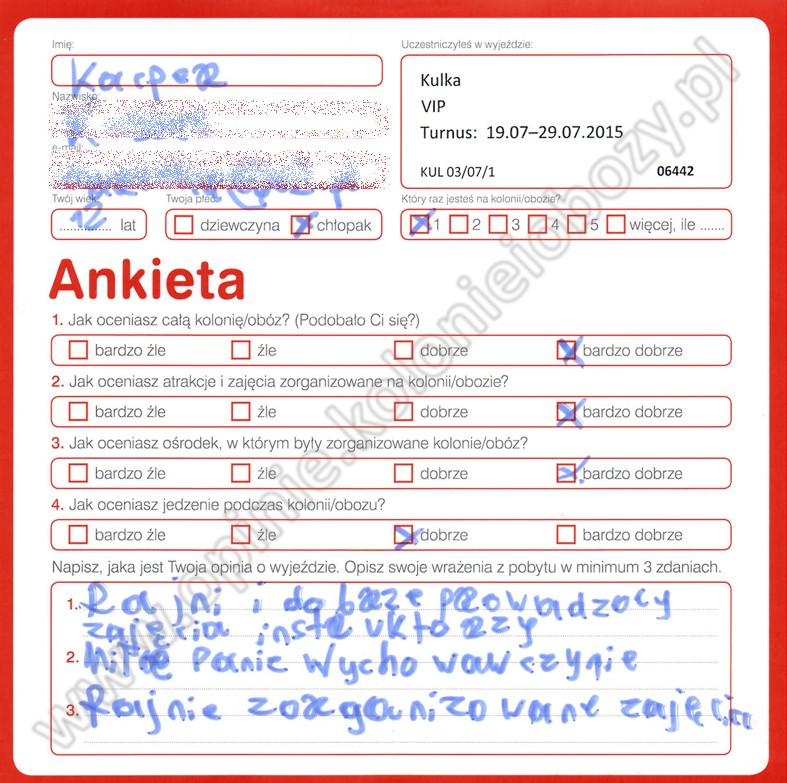 Imię:
Uczestniczyłeś w wyjeździe:
Kacper
Kulka
VIP
Turnus: 19.07–29.07.2015
KUL 03/07/1 06442
Nazwisko:
e-mail:
Twój wiek:
Twoja płeć:
Który raz jesteś na kolonii/obozie?
12 lat
dziewczyna chłopak
1 2 3 4 5 więcej, ile .......
Ankieta
1. Jak oceniasz całą kolonię/obóz? (Podobało Ci się?)
bardzo źle źle dobrze bardzo dobrze
2. Jak oceniasz atrakcje i zajęcia zorganizowane na kolonii/obozie?
bardzo źle źle dobrze bardzo dobrze
3. Jak oceniasz ośrodek, w którym były zorganizowane kolonie/obóz?
bardzo źle źle dobrze bardzo dobrze
4. Jak oceniasz jedzenie podczas kolonii/obozu?
bardzo źle źle dobrze bardzo dobrze
Napisz, jaka jest Twoja opinia o wyjeździe. Opisz swoje wrażenia z pobytu w minimum 3 zdaniach.
1. Fajni i dobrze prowadzocy
zajęcia instruktorzy
2. Miłe Panie Wychowawczynie
3. Fajnie zorganizowane zajęcia
www.opinie.kolonieiobozy.pl